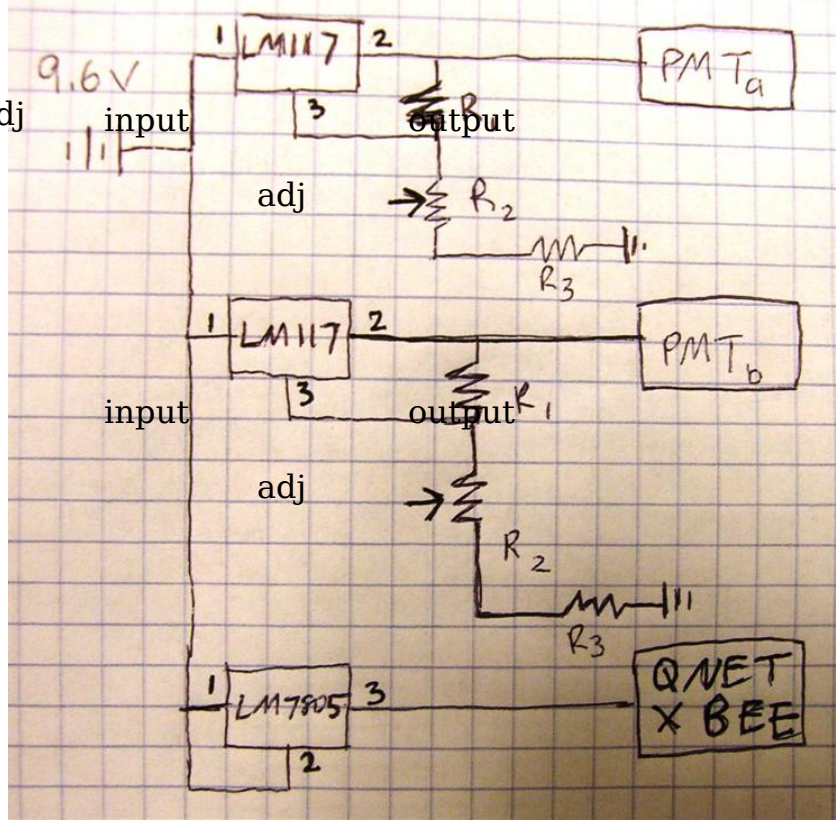 1 LM117 2
PMTa
9.6V
dj input
3
R1
output
adj
R2
R3
1 LM117 2
PMTb
3
R1
input output
adj
R2
R3
1 LM7805 3
QNET
X BEE
2